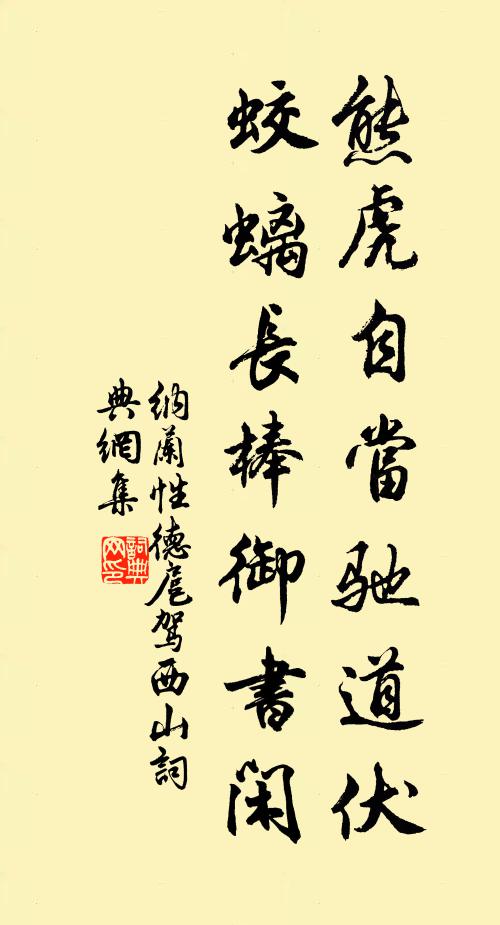 熊虎自當馳道伏
蛟螭長棒御書閑
納蘭性德扈駕西山詞
典網集
詞典网印